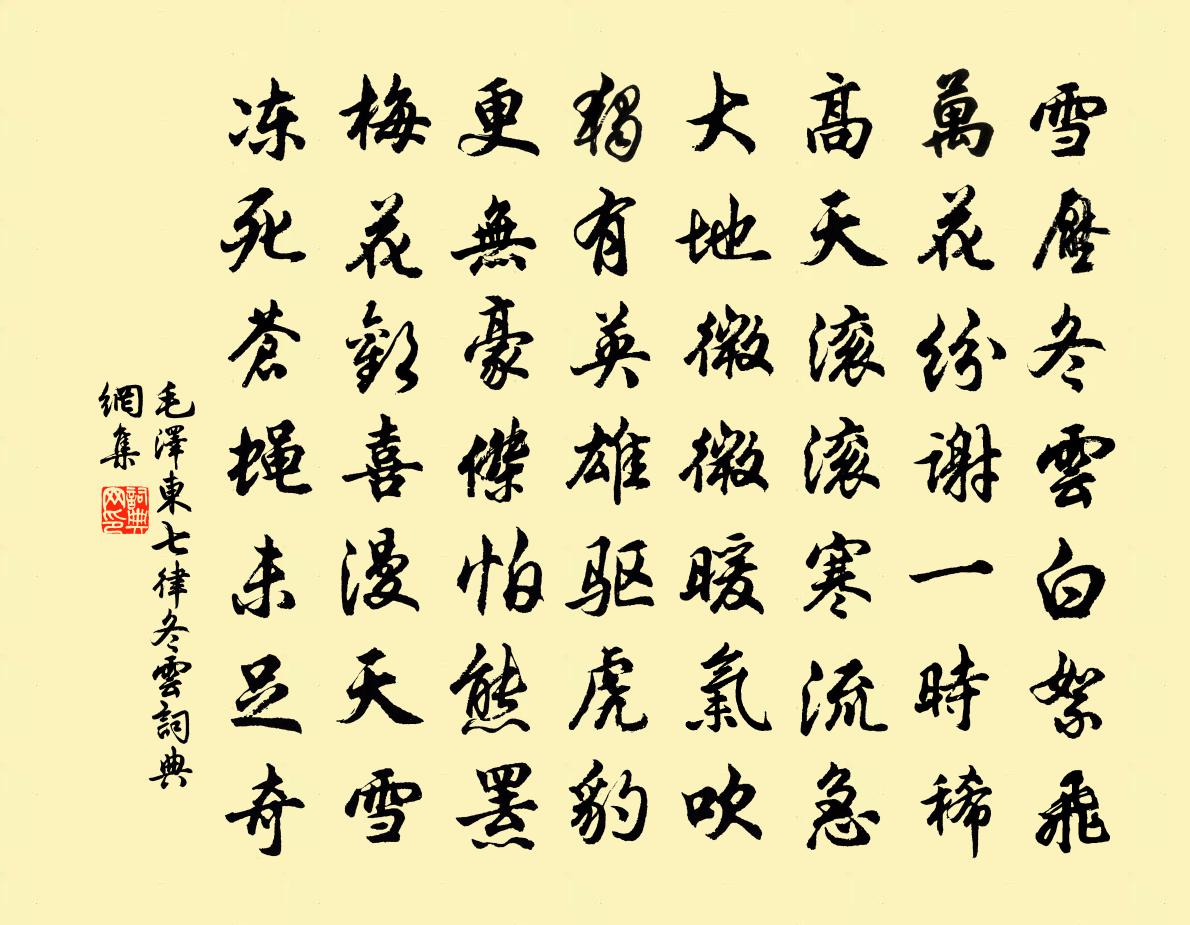 雪壓冬雲白絮飛
萬花紛謝一時稀
高天滚滚寒流急
大地微微暖氣吹
獨有英雄驱虎豹
更無豪傑怕熊羆
梅花歡喜漫天雪
冻死蒼蝇未足奇
毛澤東七律冬雲詞典
網集
詞典
网印